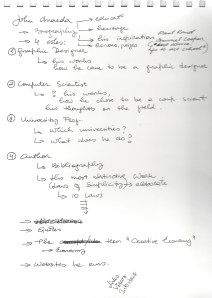 John Maeda → educat
→ Biography → heritage
→ 4 roles → his inspiration
→ honors, prizes
Paul Rand
① Graphic Designer
↳ his works
how he came to be a graphic designer
② Computer Scientist
↳ his works,
how he chose to be a comp. scient.
his thoughts on the field.
③ University Prof.
↳ Which universities?
↳ What does he do?
④ Author
↳ Bibliography
↳ His most distinctive work
(Laws of Simplicity) to elaborate
↳ 10 Laws
→ Quotes
→ The term "Creative Economy"
→ Websites he runs.